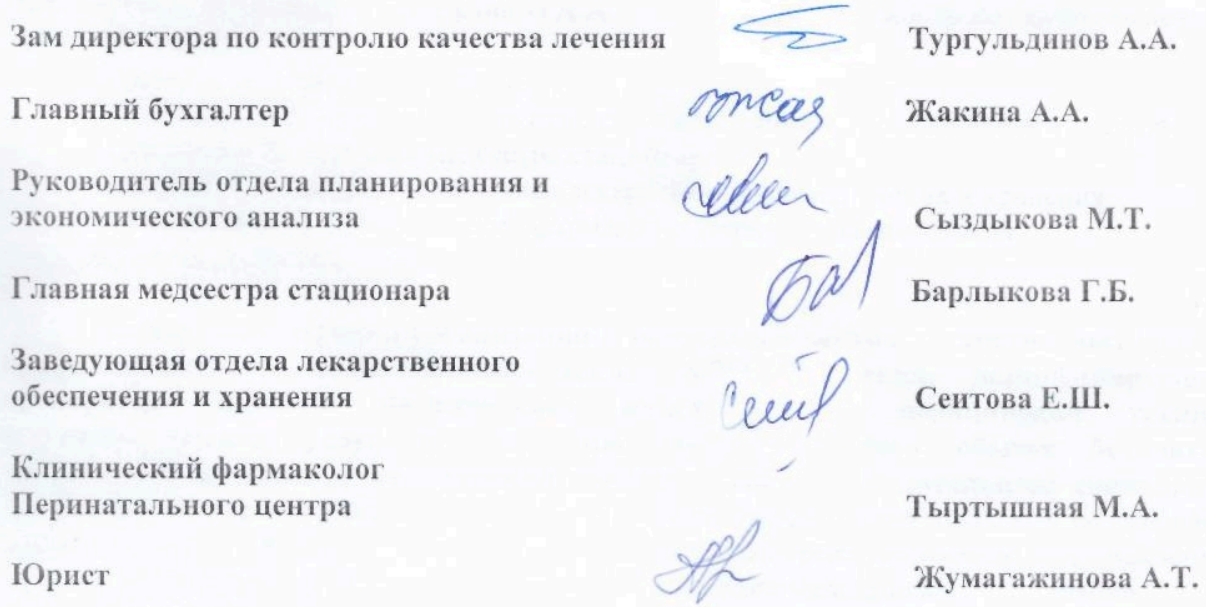 Зам директора по контролю качества лечения Тургульдинов А.А.
Главный бухгалтер Жакина А.А.
Руководитель отдела планирования и
экономического анализа Сыздыкова М.Т.
Главная медсестра стационара Барлыкова Г.Б.
Заведующая отдела лекарственного
обеспечения и хранения Сеитова Е.Ш.
Клинический фармаколог
Перинатального центра Тыртышная М.А.
Юрист Жумагажинова А.Т.